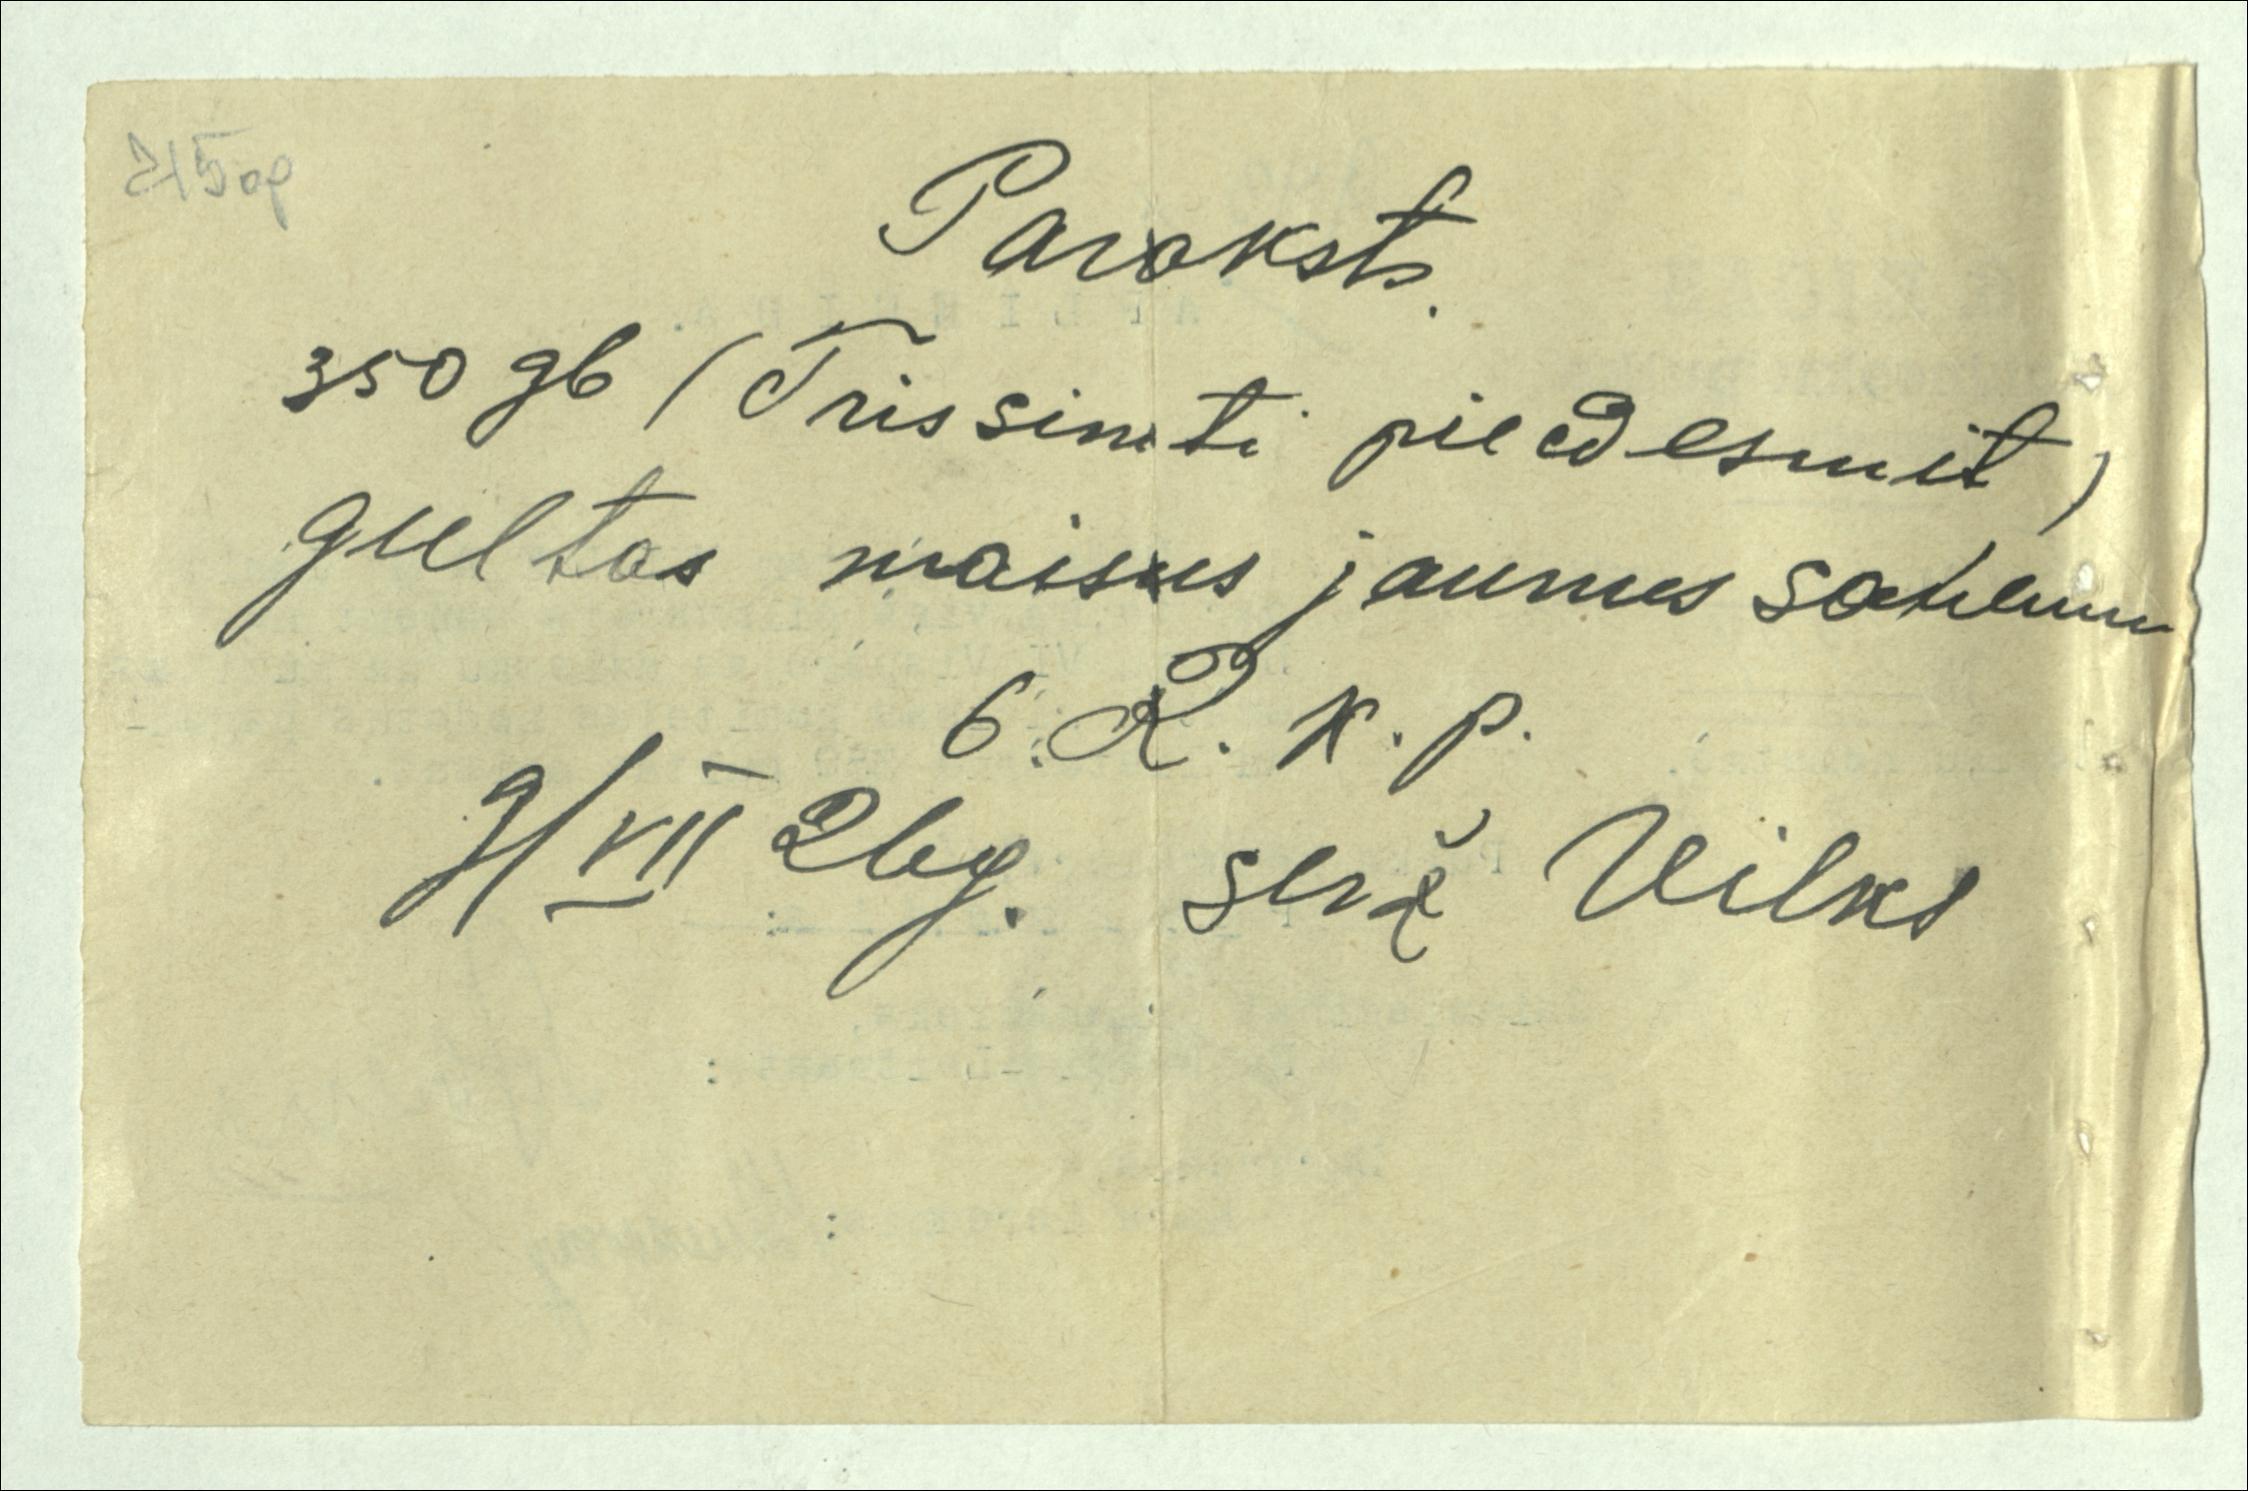 215 op
Paraksts.
350 gb (Trissimti piecdesmit)
gultas maisus jaunus saņemu
6. R. k. p.
9/VII 26 g. serž Vilks